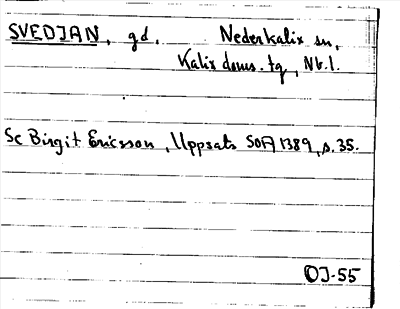 SVEDJAN, gd. Nederkalix sn,
Kalix doms. tg, Nb.l.
Se Birgit Ericsson, Uppsats SOFI 1389, s. 35.
OJ-55